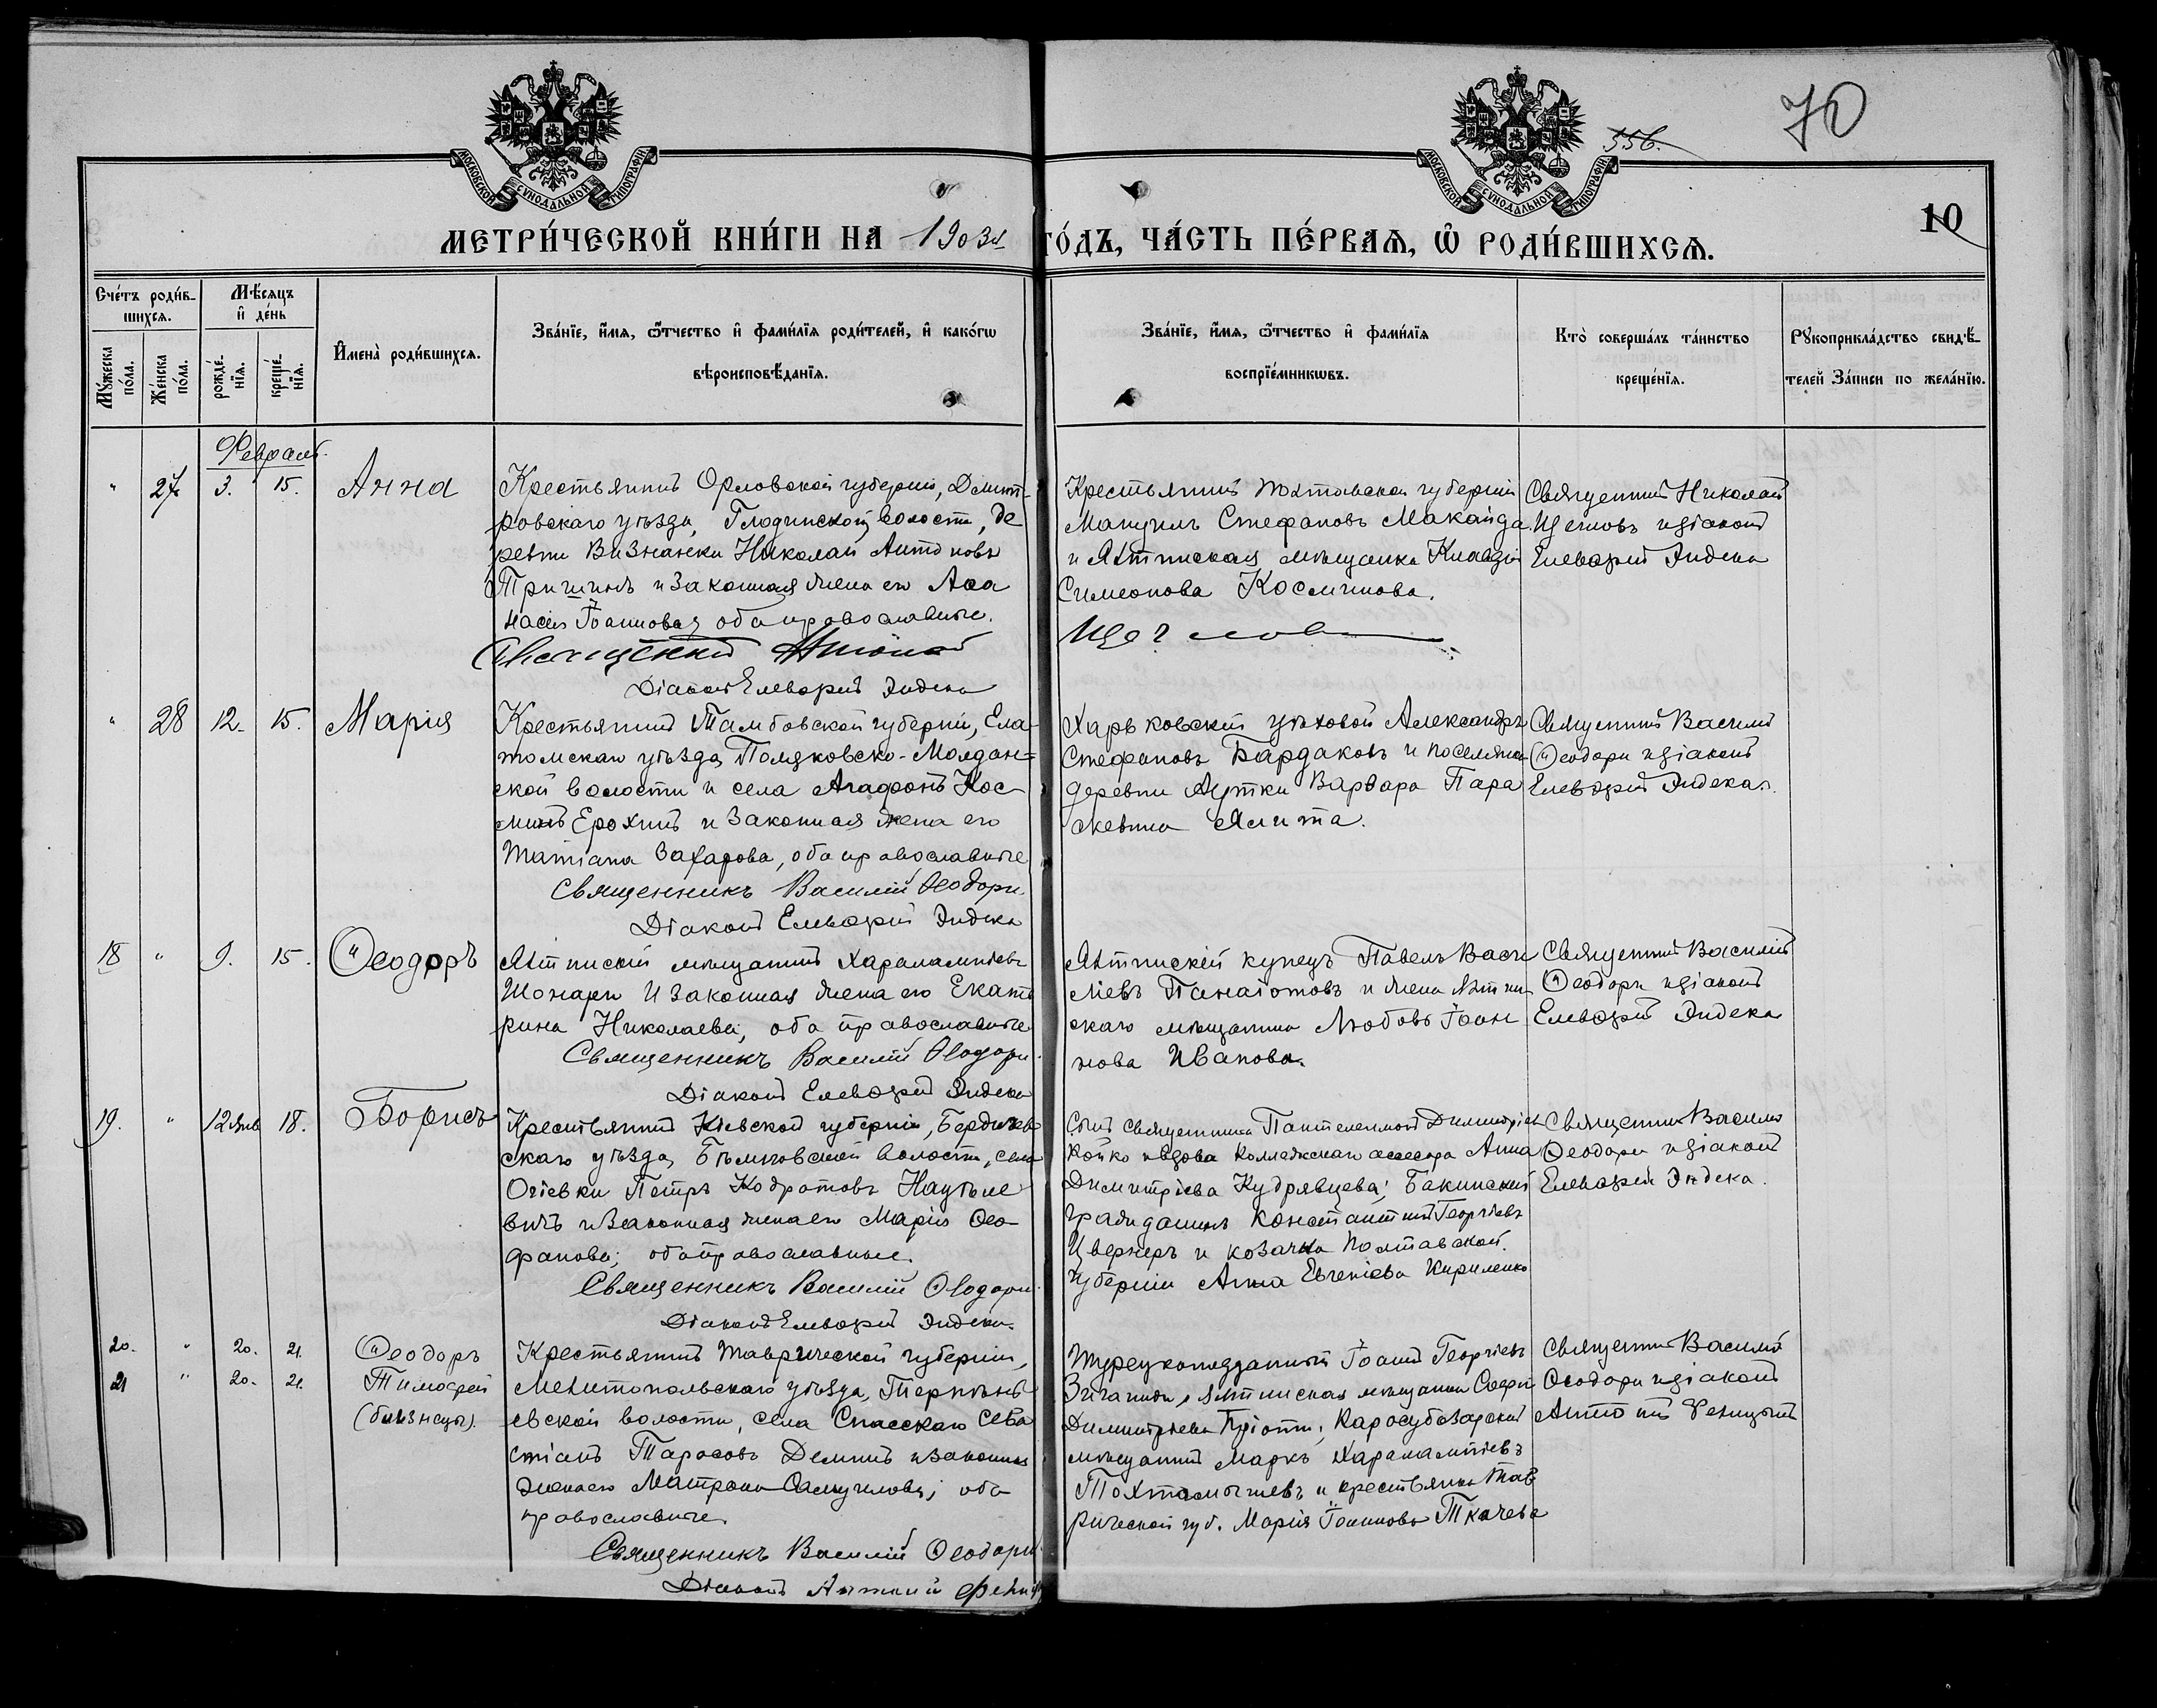 70
556.
10
МОСКОВСКОЙ СУНОДАЛЬНОЙ ТИПОГРАФІИ
МОСКОВСКОЙ СУНОДАЛЬНОЙ ТИПОГРАФІИ
МЕТРИ́ЧЕСКОЙ КНИ́ГИ НА 1903й ГО́ДЪ, ЧА́СТЬ ПЕ́РВАѦ, Ѡ҆ РОДИ́ВШИХСѦ.
Сче́тъ роди́в-
шихсѧ.
Му́жеска по́ла.
Же́нска по́ла.
Мѣ́сѧцъ
и҆ де́нь
рожде́-
нїѧ.
креще́-
нїѧ.
И҆мена̀ роди́вшихсѧ.
Зва́нїе, и҆́мѧ, ѻ҆́тчество и҆ фами́лїѧ роди́телей, и҆ како́гѡ
вѣроисповѣ́данїѧ.
Зва́нїе, и҆́мѧ, ѻ҆́тчество и҆ фами́лїѧ
воспрїе́мникѡвъ.
Кто̀ соверша́лъ та́инство
креще́нїѧ.
Рꙋкоприкла́дство свидѣ́-
телей За́писи по жела́нїю.
Февраль
" 27 3. 15. Анна
Крестьянинъ Орловской губерніи, Дмит-
ровскаго уѣзда, Глодинской волости, де
ревни Николай Антоновъ
Тришинъ и законная жена его Аѳа
насія Іоаннова, оба православные.
Священникъ Николай
Діаконъ Елевѳерій Эндека
Крестьянинъ Полтавской губерніи
Мануилъ Стефановъ Макайда
и Ялтинская мѣщанка Клавдія
Симеонова Космикова.
Щегловъ
Священникъ Николай
Щегловъ и діаконъ
Елевѳерій Эндека
" 28 12. 15. Марія
Крестьянинъ Тамбовской губерніи, Ела
томскаго уѣзда, Поляковско-Молдан=
ской волости и села Агафонъ Кос
минъ Ерохинъ и законная жена его
Татіана Захарова, оба православные
Священникъ Василій Ѳеодори
Діаконъ Елевѳерій Эндека
Харьковскій цѣховой Александръ
Стефановъ Бардаковъ и поселянка
деревни Аутки Варвара Пара
скевина Ялита.
Священникъ Василій
Ѳеодори и діаконъ
Елевѳерій Эндека.
18 " 9. 15. Ѳеодоръ
Ялтинскій мѣщанинъ Харалампіевъ
Шонари и законная жена его Екате
рина Николаева, оба православные
Священникъ Василій Ѳеодори
Діаконъ Елевѳерій Эндека
Ялтинскій купецъ Павелъ Васи
ліевъ Панаіотовъ и жена Ялтин
скаго мѣщанина Любовь Іоан
нова Иванова.
Священникъ Василій
Ѳеодори и діаконъ
Елевѳерій Эндека
19. " 12 Янв 18. Борисъ
Крестьянинъ Кіевской губерніи, Бердичев
скаго уѣзда, волости, села
Огіевки Петръ Кодратовъ
вичъ и законная жена его Марія Ѳео
фанова, оба православные.
Священникъ Василій Ѳеодори
Діаконъ Елевѳерій Эндека.
Сынъ священника Пантелеимонъ Димитріев
Койко и вдова коллежскаго ассесора Анна
Димитріева Кудрявцева; Бакинскій
гражданинъ Константинъ Георгіевъ
Цвернеръ и козачка Полтавской
губерніи Анна Евгеніева Кириленко
Священникъ Василій
Ѳеодори и діаконъ
Елевѳерій Эндека.
20. " 20. 21. Ѳеодоръ
21 " 20. 21. Тимоѳей
(близнецы).
Крестьянинъ Таврической губерніи,
Мелитопольскаго уѣзда, Терпѣнь
евской волости, села Спасскаго Сева
стіанъ Тарасовъ Деминъ и законная
жена его Матрона Самуилова, оба
православные.
Священникъ Василій Ѳеодори
Діаконъ Антоній
Турецкоподданный Іоаннъ Георгіевъ
и Ялтинская мѣщанка Софія
Димитріева; Карасубазарскій
мѣщанинъ Маркъ Харалампіевъ
Тохтамышевъ и крестьянка Тав
рической губ. Марія Іоаннова Ткачева
Священникъ Василій
Ѳеодори и діаконъ
Антоній